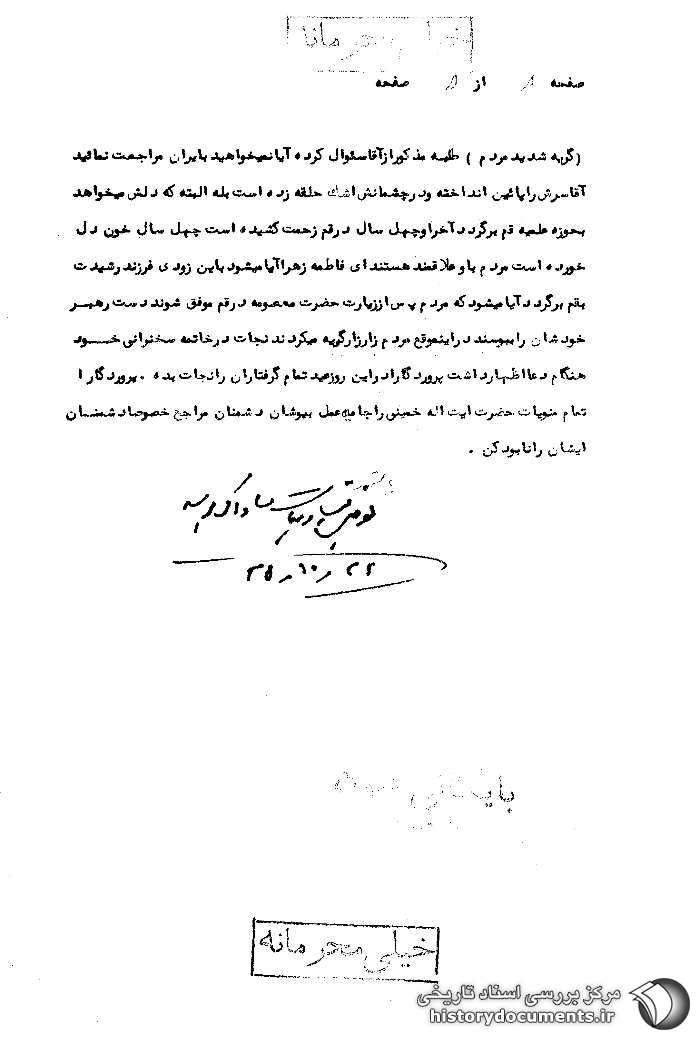 خیلی محرمانه
صفحه ۸ از ۸ صفحه
(گریه شدید مردم ) طلبه مذکور از آقا سئوال کرده آیا نمیخواهید بایران مراجعت نمائید
آقا سرش را پائین انداخته و در چشمانش اشک حلقه زده است بله البته که دلش میخواهد
بحوزه علمیه قم برگردد آخر او چهل سال در قم زحمت کشیده است چهل سال خون دل
خورده است مردم باو علاقمند هستند ای فاطمه زهرا آیا میشود باین زودی فرزند رشیدت
بقم برگردد آیا میشود که مردم پس از زیارت حضرت معصومه در قم موفق شوند دست رهبر
خودشان را ببوسند در اینموقع مردم زار زار گریه میکردند نجات در خاتمه سخنرانی خود
هنگام دعا اظهار داشت پروردگارا در این روز عید تمام گرفتاران را نجات بده . پروردگارا
تمام منویات حضرت ایت اله خمینی را جامه عمل بپوشان دشمنان مراجع خصوصا دشمنان
ایشان را نابود کن .
۴۵ ر ۱۰ ر ۲۲
خیلی محرمانه
مرکز بررسی اسناد تاریخی
historydocuments.ir